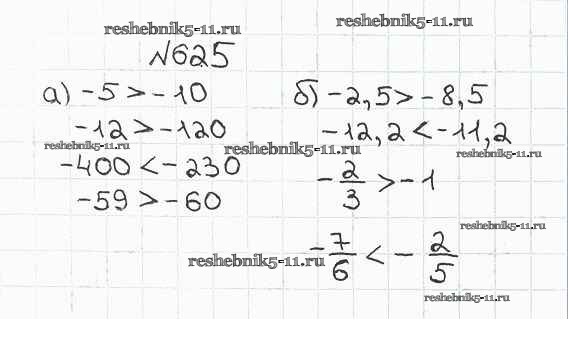 reshebnik5-11.ru
reshebnik5-11.ru
№625
а) -5 > -10
б) -2,5 > -8,5
-12 > -120
-12,2 < -11,2
reshebnik5-11.ru
reshebnik5-11.ru
reshebnik5-11.ru
-400 < -230
-2/3 > -1
-59 > -60
reshebnik5-11.ru
-7/6 < -2/5
reshebnik5-11.ru
reshebnik5-11.ru